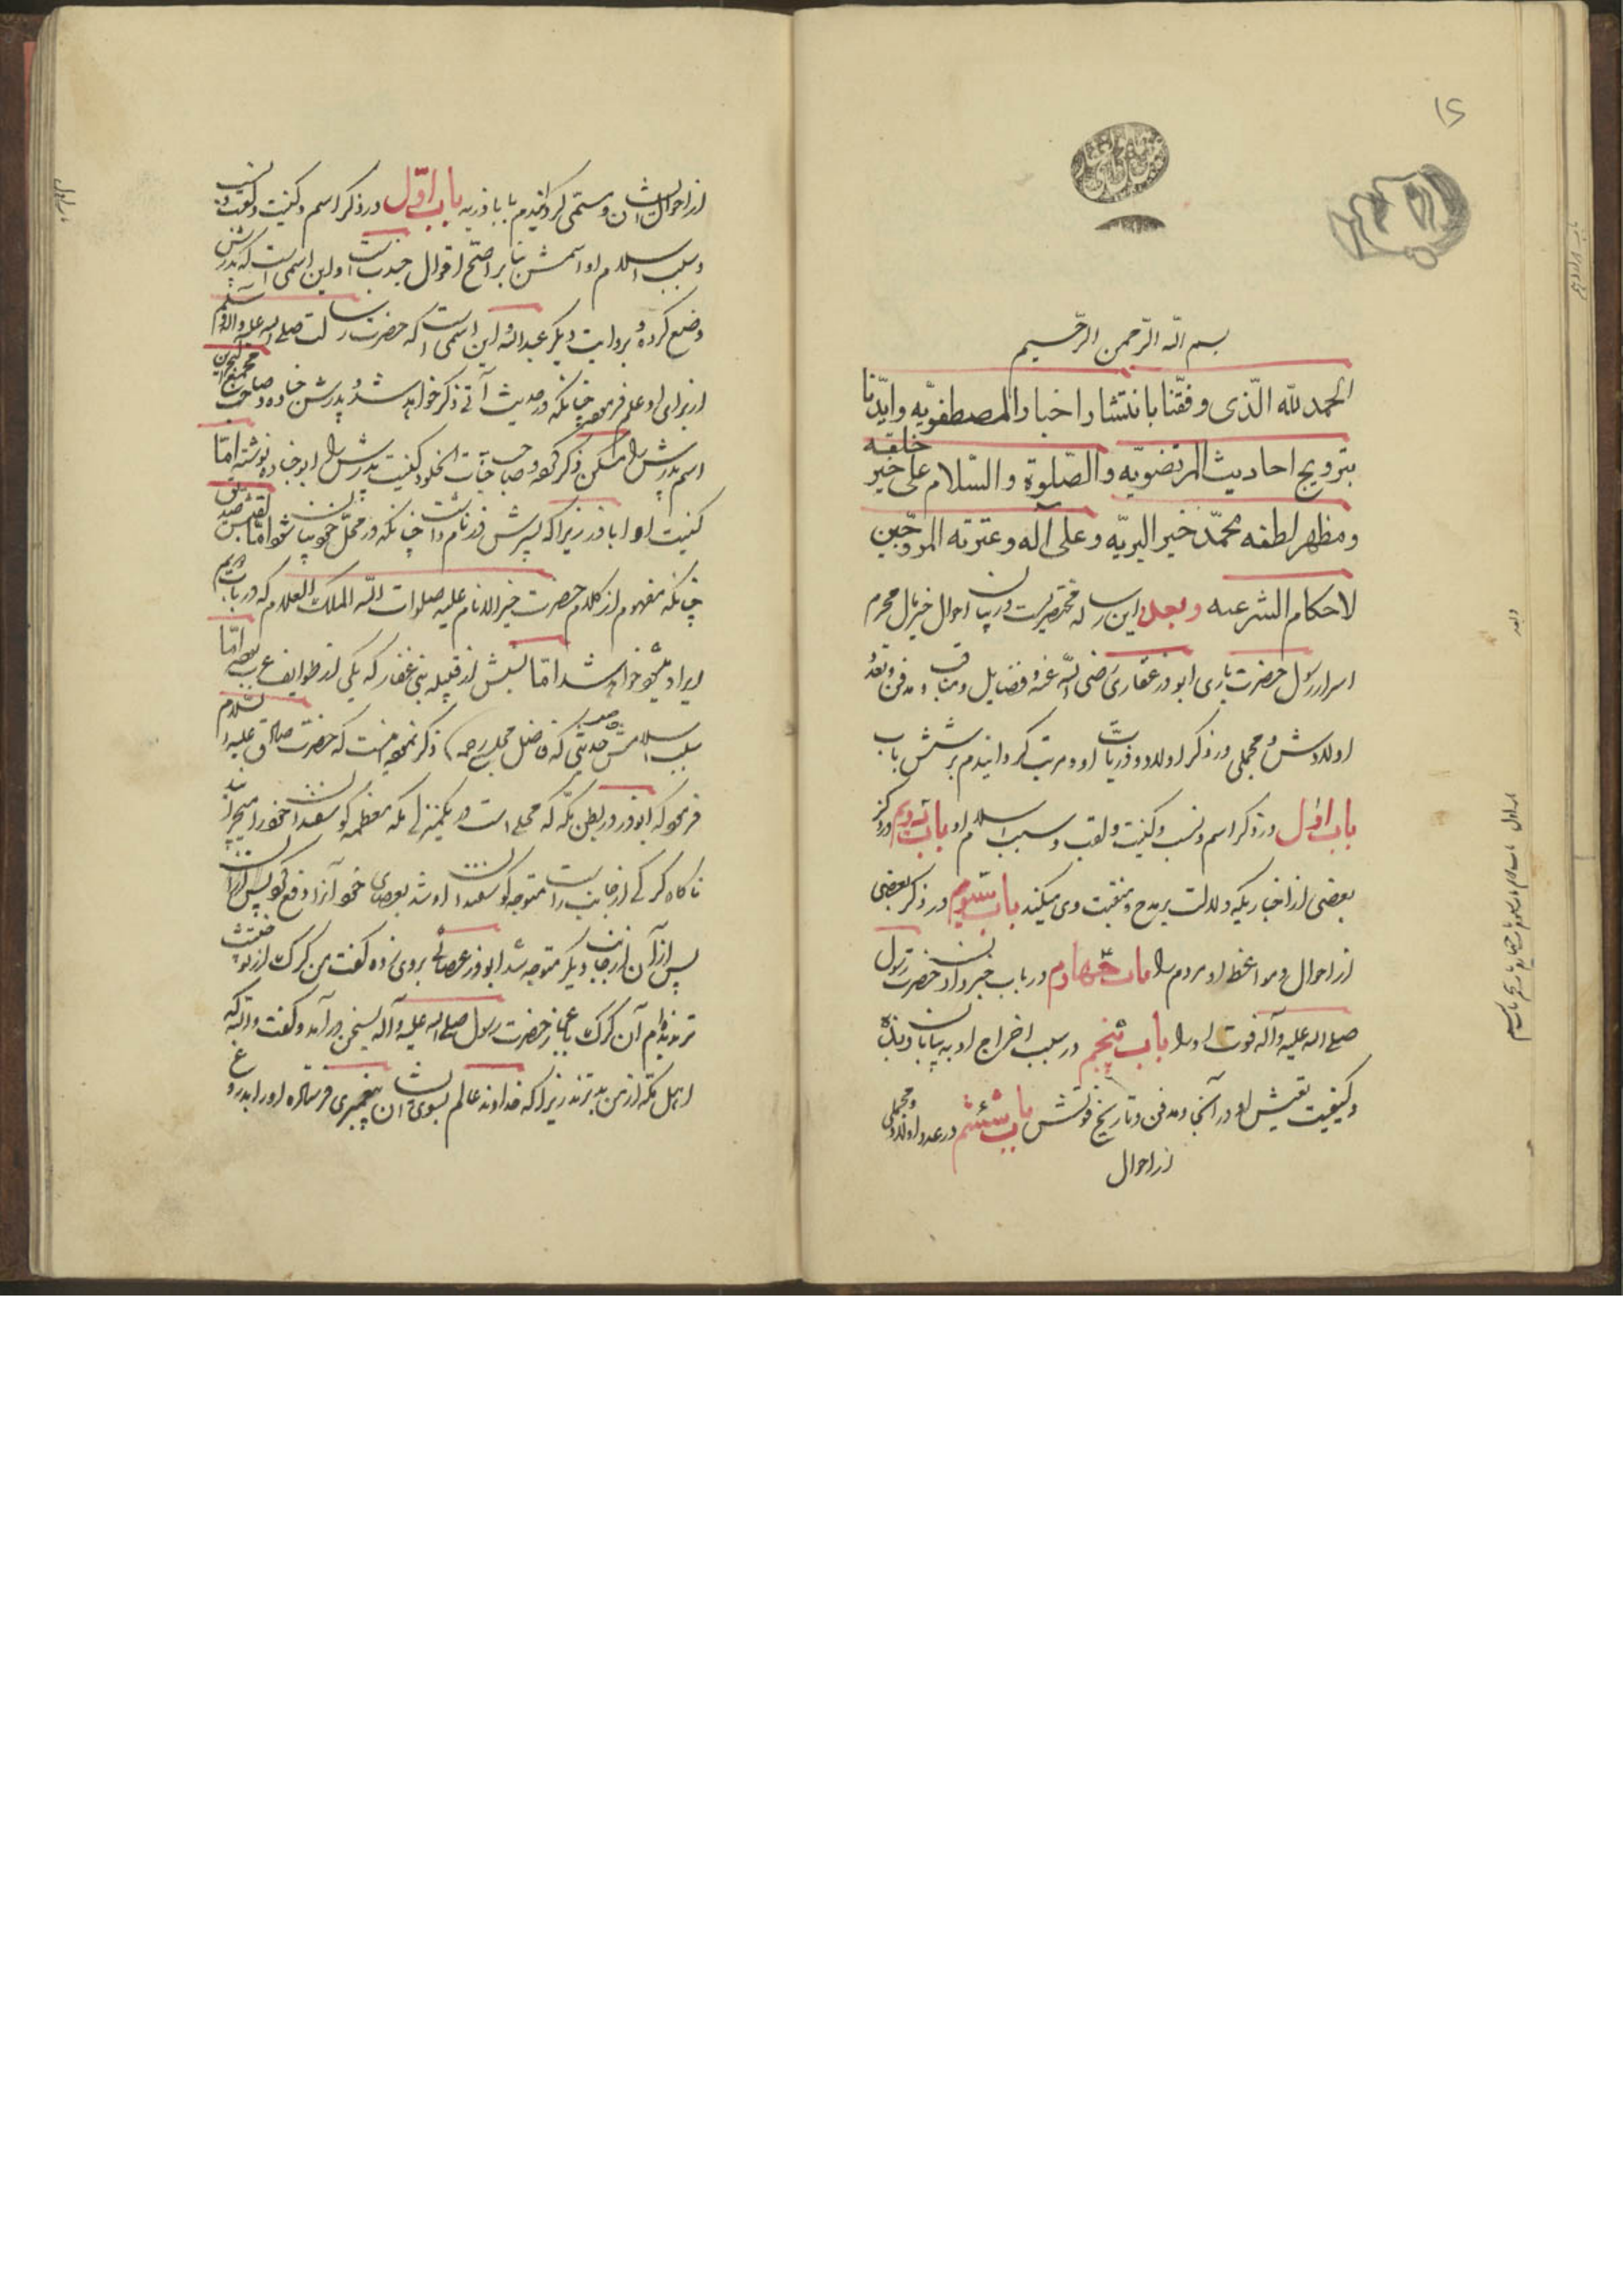 بسم الله الرحمن الرحیم
الحمد لله الّذی وفقّنا بانتشار اخبار المصطفویّه وایّدنا
بترویج احادیث المرتضویّه والصّلوة والسّلام علی خیر خلقه
ومظهر لطفه محمّد خیر البریّه وعلی آله وعترته المروّجین
لاحکام الشرعیه وبعد این رساله مختصریست در بیان احوال محرم
اسرار رسول حضرت باری ابوذر غفاری رضی الله عنه وفضایل ومناقب ومدفن وتعداد
اولادش ومجملی در ذکر اولاد وذریات او ومرتب کردانیدم بر شش باب
باب اول در ذکر اسم ونسب وکنیت ولقب وسبب اسلام او باب دویم در ذکر
بعضی از اخباریکه دلالت بر مدح ومنقبت وی میکند باب سیوم در ذکر بعضی
از احوال ومواعظ او مردم را باب چهارم در باب خبر دادن حضرت رسول
صلی الله علیه وآله فوت او را باب پنجم در سبب اخراج او به بیابان ربذه
وکیفیت تعیش او در آنجا ومدفن وتاریخ فوتش باب ششم در عدد اولاد ومجملی
از احوال
از احوال ایشان ومسمّی کردانیدم باباذریه باب اوّل در ذکر اسم وکنیت ولقب ونسب
وسبب اسلام او اسمش بنا بر اصحّ اقوال جندبست واین اسمی است که پدرش
وضع کرده وبروایت دیکر عبدالله واین اسمی است که حضرت رسالت صلی الله علیه وآله وسلم
از برای او علم فرموده چنانکه در حدیث آتی ذکر خواهد شد وپدرش جناده وصاحب مجمع البحرین
اسم پدرش را سکن ذکر کرده وصاحب جنات الخلود کنیت پدرش را ابوجناده نوشته امّا
کنیت او اباذر زیرا که پسرش ذر نام داشت چنانکه در محلّ خود بیان شود امّا لقبش صدیق
چنانکه مفهوم از کلام حضرت خیر الانام علیه صلوات الله الملک العلام که در باب دویم
ایراد خواهد شد امّا نسبش از قبیله بنی غفار که یکی از طوایف عربست امّا
سبب اسلامش حدیثی که فاضل مجلسی رحمه ذکر نموده اینست که حضرت صادق علیه السلام
فرمود که ابوذر در بطن مکّه که محلی است در یکمنزلی مکه معظمه کوسفندان خود را میچرانید
ناکاه کرکی از جانب راست متوجه کوسفندان او شد بعصای خود آنرا دفع کرد پس کرک
پس از آن از جانب دیکر متوجه شد ابوذر عصائی بروی زده کفت من کرک از تو
ندیدم آن کرک باعجاز حضرت رسول صلی الله علیه وآله بسخن در آمد وکفت والله که
اهل مکّه از من بدترند زیرا که خداوند عالم بسوی ایشان پیغمبری فرستاده او را بدروغ